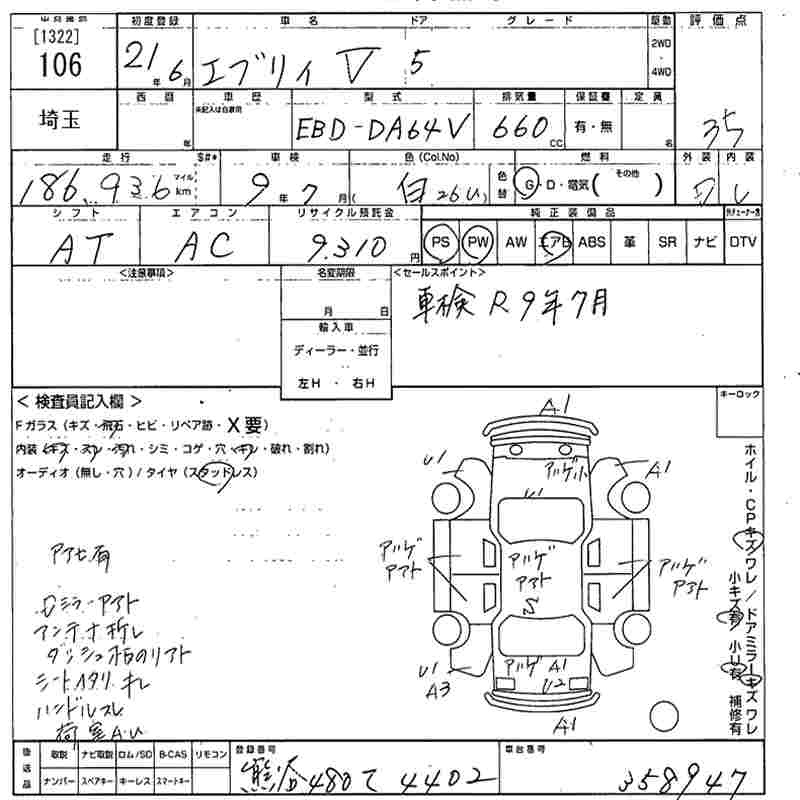 [1322]
106
埼玉
初度登録 車名 ドア グレード 駆動 評価点
21年 6月 エブリィ V 5 2WD・4WD
西暦 車歴 型式 排気量 保証書 定員
未記入は自家用
年 EBD-DA64V 660cc 有・無 名 35
走行 S#* 車検 色(Col.No) 燃料 外装 内装
186,936 マイル km 9年7月( 白 26U) 色替 G・D・電気( その他 )
シフト エアコン リサイクル預託金 純正装備品
AT AC 9.310円 PS PW AW エアB ABS 革 SR ナビ DTV
<注意事項> 名変期限 <セールスポイント>
月 日 車検 R9年7月
輸入車
ディーラー・並行
左H ・ 右H
< 検査員記入欄 > キーロック
Fガラス(キズ・飛石・ヒビ・リペア跡・X要)
内装(キズ・スレ・汚れ・シミ・コゲ・穴・キレ・破れ・割れ)
オーディオ(無し・穴)/タイヤ(スタッドレス)
A1
U1 アハゲ小 A1
U1
アハゲ アハゲ アハゲ
アマト アマト アマト
U1 アハゲ A1
A3 U2
A1
ホイル・CPキズワレ/ドアミラーキズワレ
小キズ有 小U有 補修有
アンテナ折レ
ハンドルスレ
荷室A.U
後送品 取説 ナビ取説 ロム/SD B-CAS リモコン
ナンバー スペアキー キーレス スマートキー
登録番号 車台番号
熊谷 480 て 4402 358947